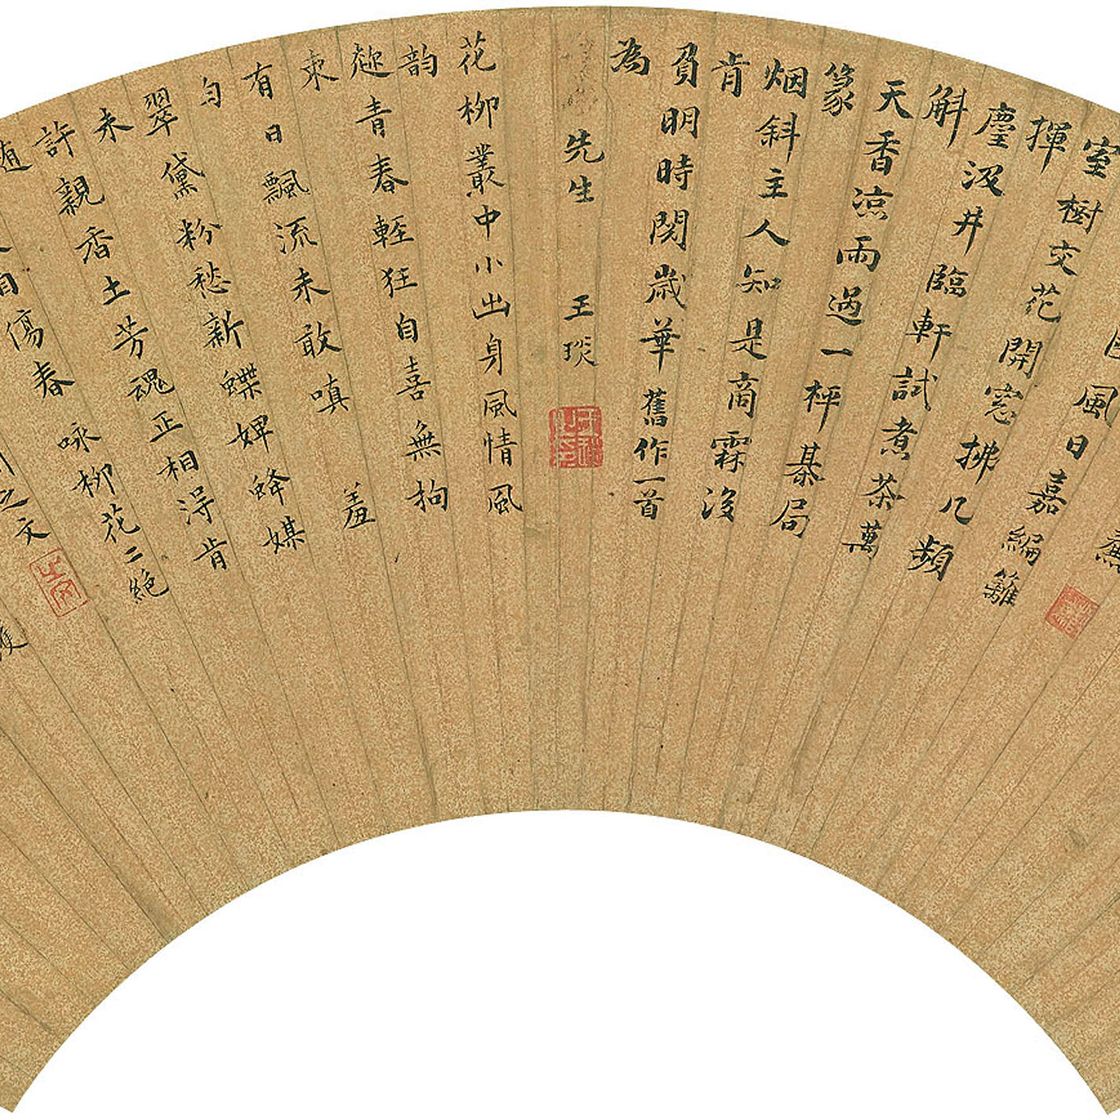 風日嘉編籬
室樹交花開窓拂几頻
揮
麈汲井臨軒試煮茶萬
斛
天香涼雨過一枰棊局
篆
烟斜主人知是商霖後
肯
負明時閱歲華 舊作一首
為
先生 王琰
花柳叢中小出身風情風
韵
趂青春輕狂自喜無拘
束
有日飄流未敢嗔 羞
匀
翠黛粉愁新蝶婢蜂媒
未
許親香土芳魂正相淂肯
隨
自傷春 咏柳花二絶
之文